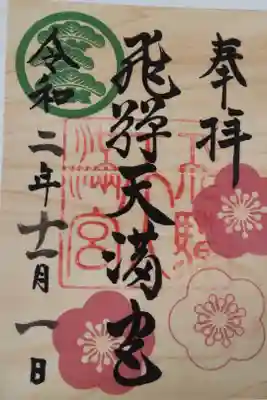 奉拝
飛騨天満宮
令和二年十一月一日